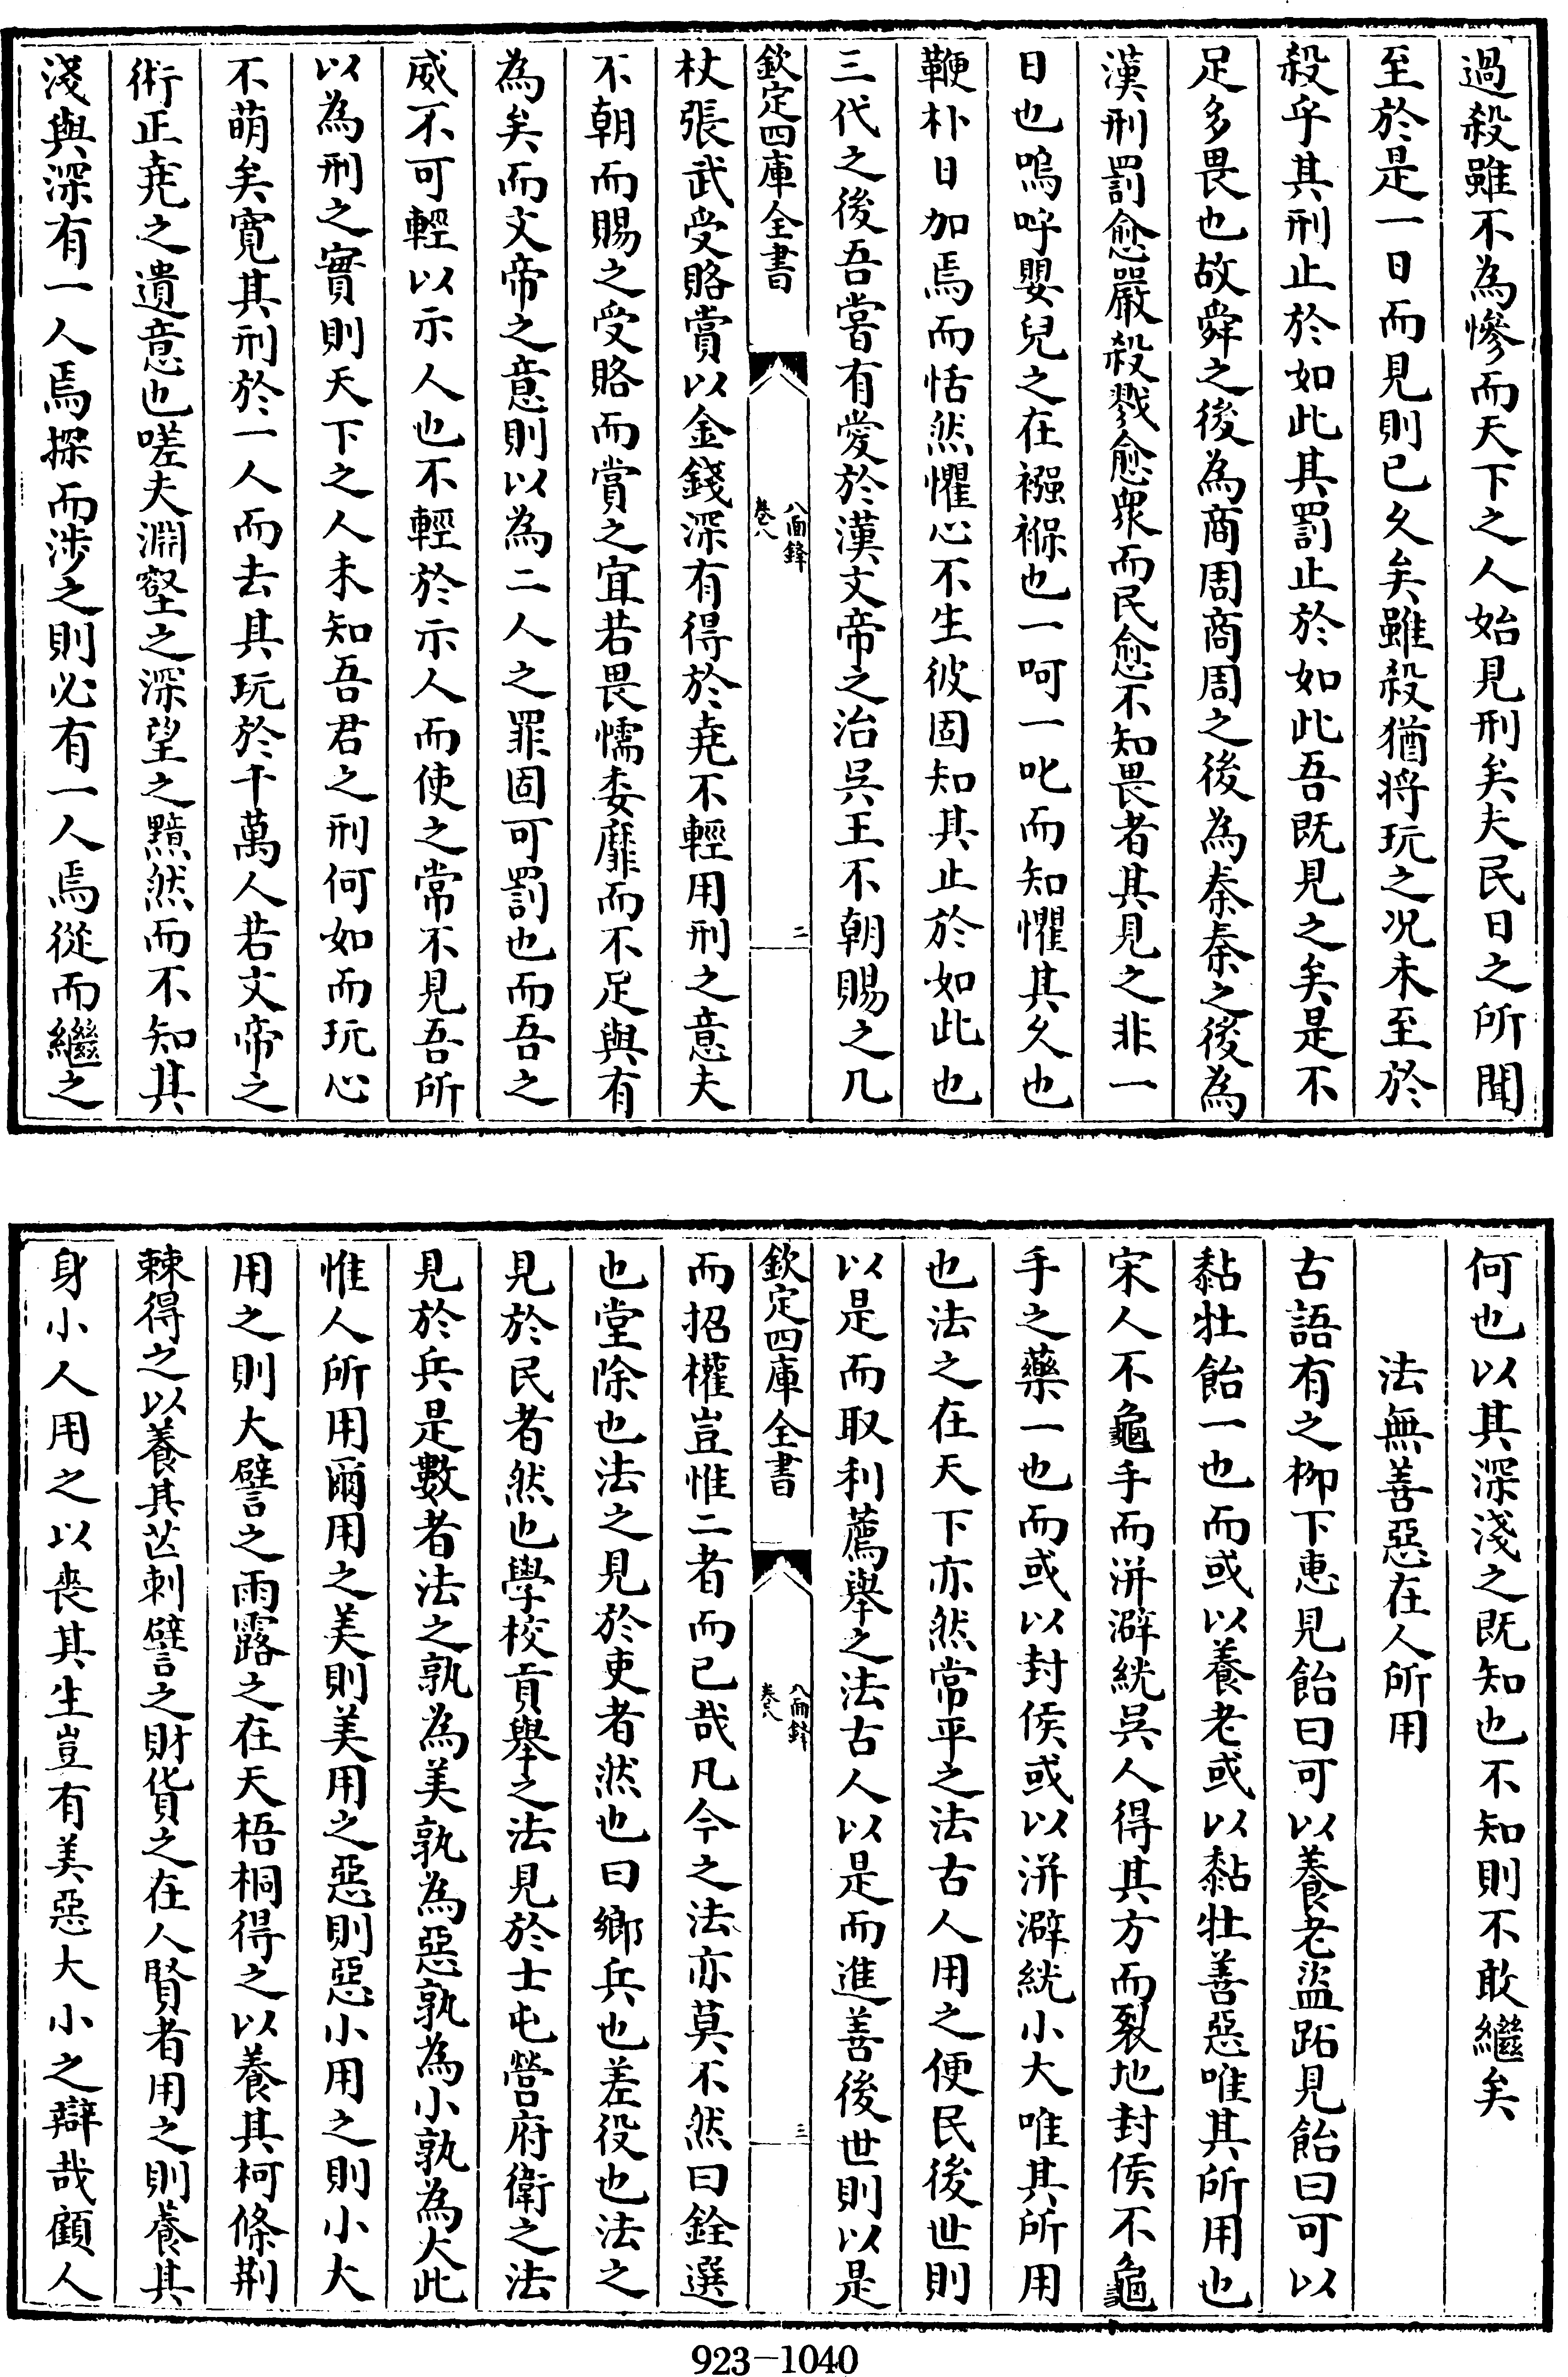 過殺雖不為慘而天下之人始見刑矣夫民日之所聞
至於是一日而見則已久矣雖殺猶將玩之况未至於
殺乎其刑止於如此其罰止於如此吾既見之矣是不
足多畏也故舜之後為商周商周之後為秦秦之後為
漢刑罰愈嚴殺戮愈衆而民愈不知畏者其見之非一
日也嗚呼嬰兒之在襁褓也一呵一叱而知懼其久也
鞭朴日加焉而恬然懼心不生彼固知其止於如此也
三代之後吾嘗有愛於漢文帝之治吳王不朝賜之几
欽定四庫全書
八面鋒
卷八
二
杖張武受賂賞以金錢深有得於堯不輕用刑之意夫
不朝而賜之受賂而賞之宜若畏懦委靡而不足與有
為矣而文帝之意則以為二人之罪固可罰也而吾之
威不可輕以示人也不輕於示人而使之常不見吾所
以為刑之實則天下之人未知吾君之刑何如而玩心
不萌矣寛其刑於一人而去其玩於千萬人若文帝之
術正堯之遺意也嗟夫淵壑之深望之黯然而不知其
淺與深有一人焉探而涉之則必有一人焉從而繼之
何也以其深淺之既知也不知則不敢繼矣
法無善惡在人所用
古語有之栁下惠見飴曰可以養老盜跖見飴曰可以
黏牡飴一也而或以養老或以黏牡善惡唯其所用也
宋人不龜手而洴澼絖吳人得其方而裂地封侯不龜
手之藥一也而或以封侯或以洴澼絖小大唯其所用
也法之在天下亦然常平之法古人用之便民後世則
以是而取利薦舉之法古人以是而進善後世則以是
欽定四庫全書
八面鋒
卷八
三
而招權豈惟二者而已哉凡今之法亦莫不然曰銓選
也堂除也法之見於吏者然也曰鄉兵也差役也法之
見於民者然也學校貢舉之法見於士屯營府衛之法
見於兵是數者法之孰為美孰為惡孰為小孰為大此
惟人所用爾用之美則美用之惡則惡小用之則小大
用之則大譬之雨露之在天梧桐得之以養其柯條荆
棘得之以養其芒刺譬之財貨之在人賢者用之則養其
身小人用之以喪其生豈有美惡大小之辯哉顧人
923-1040